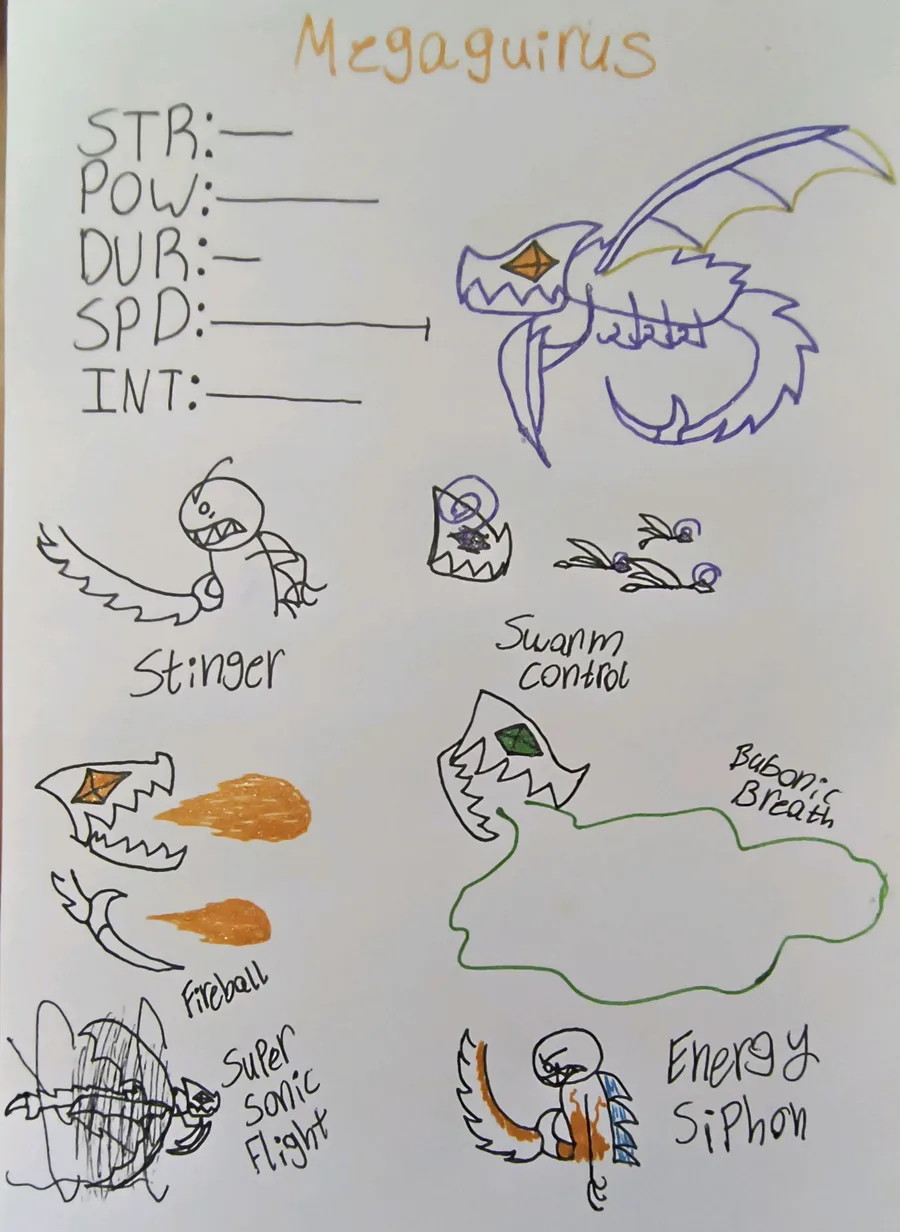 Megaguirus
STR:
POW:
DUR:
SPD:
INT:
Stinger
Swarm
control
Bubonic
Breath
Fireball
Super
Sonic
Flight
Energy
Siphon